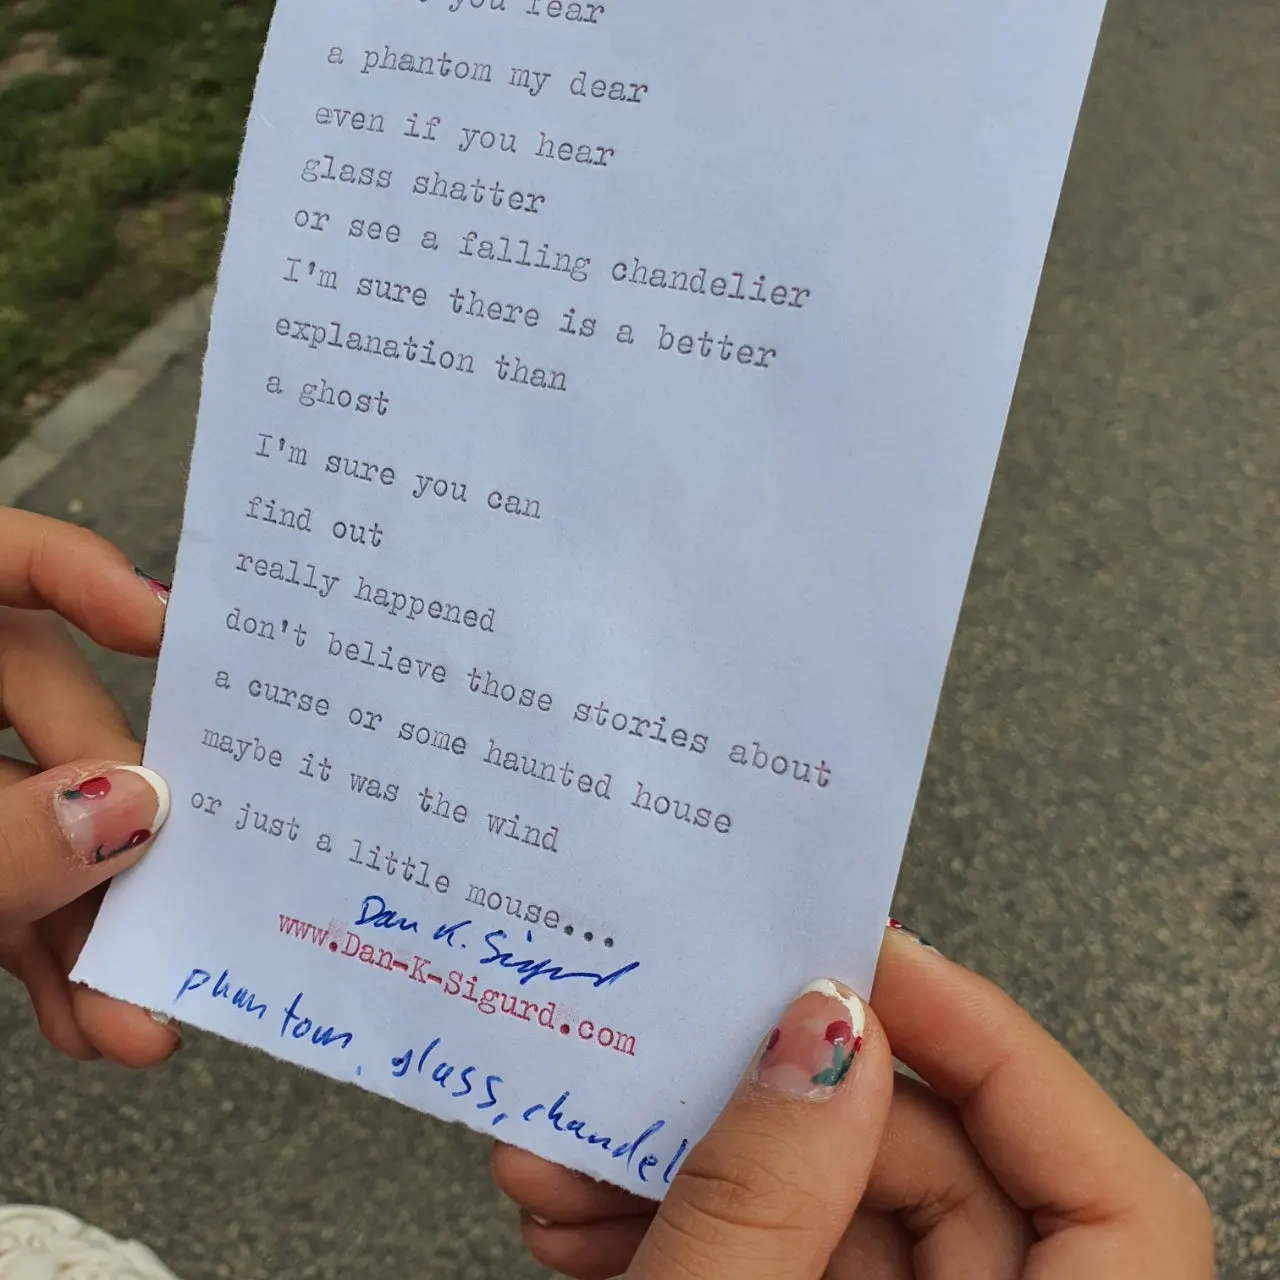 you fear
a phantom my dear
even if you hear
glass shatter
or see a falling chandelier
I'm sure there is a better
explanation than
a ghost
I'm sure you can
find out
really happened
don't believe those stories about
a curse or some haunted house
maybe it was the wind
or just a little mouse...
Dan K. Sigurd
www.Dan-K-Sigurd.com
phantom, glass, chandel